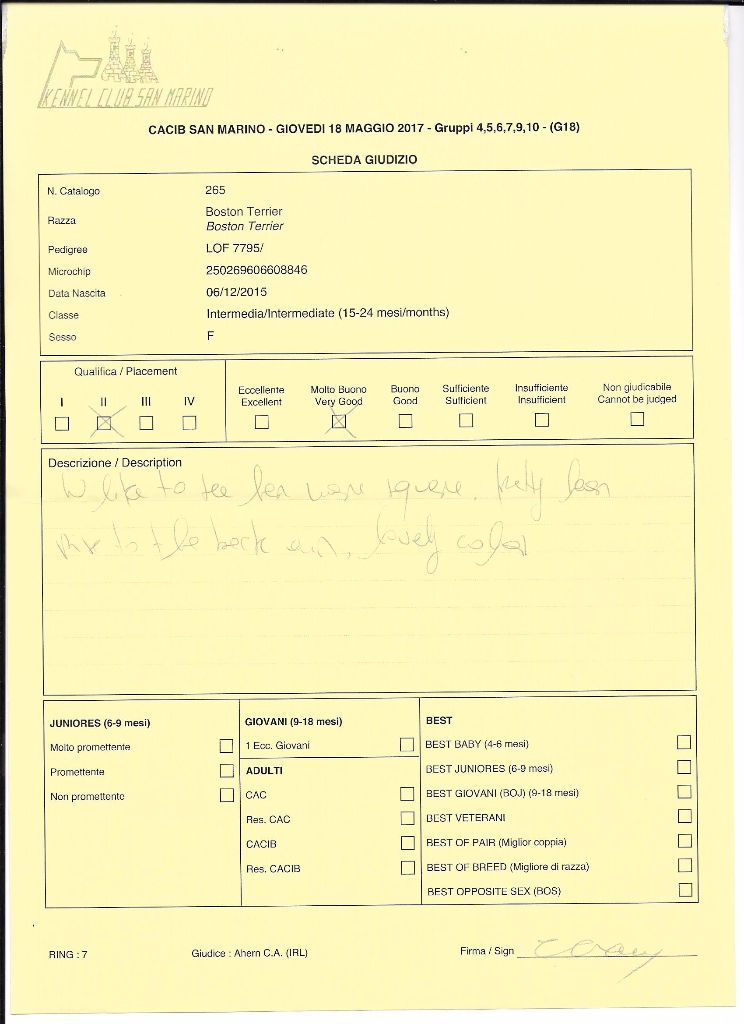 KENNEL CLUB SAN MARINO
CACIB SAN MARINO - GIOVEDI 18 MAGGIO 2017 - Gruppi 4,5,6,7,9,10 - (G18)
SCHEDA GIUDIZIO
N. Catalogo 265
Razza Boston Terrier
Boston Terrier
Pedigree LOF 7795/
Microchip 250269606608846
Data Nascita 06/12/2015
Classe Intermedia/Intermediate (15-24 mesi/months)
Sesso F
Qualifica / Placement
I II III IV
Eccellente Molto Buono Buono Sufficiente Insufficiente Non giudicabile
Excellent Very Good Good Sufficient Insufficient Cannot be judged
Descrizione / Description
like to see her more square.
to the back end. lovely color
JUNIORES (6-9 mesi)
Molto promettente
Promettente
Non promettente
GIOVANI (9-18 mesi)
1 Ecc. Giovani
ADULTI
CAC
Res. CAC
CACIB
Res. CACIB
BEST
BEST BABY (4-6 mesi)
BEST JUNIORES (6-9 mesi)
BEST GIOVANI (BOJ) (9-18 mesi)
BEST VETERANI
BEST OF PAIR (Miglior coppia)
BEST OF BREED (Migliore di razza)
BEST OPPOSITE SEX (BOS)
RING : 7 Giudice : Ahern C.A. (IRL) Firma / Sign